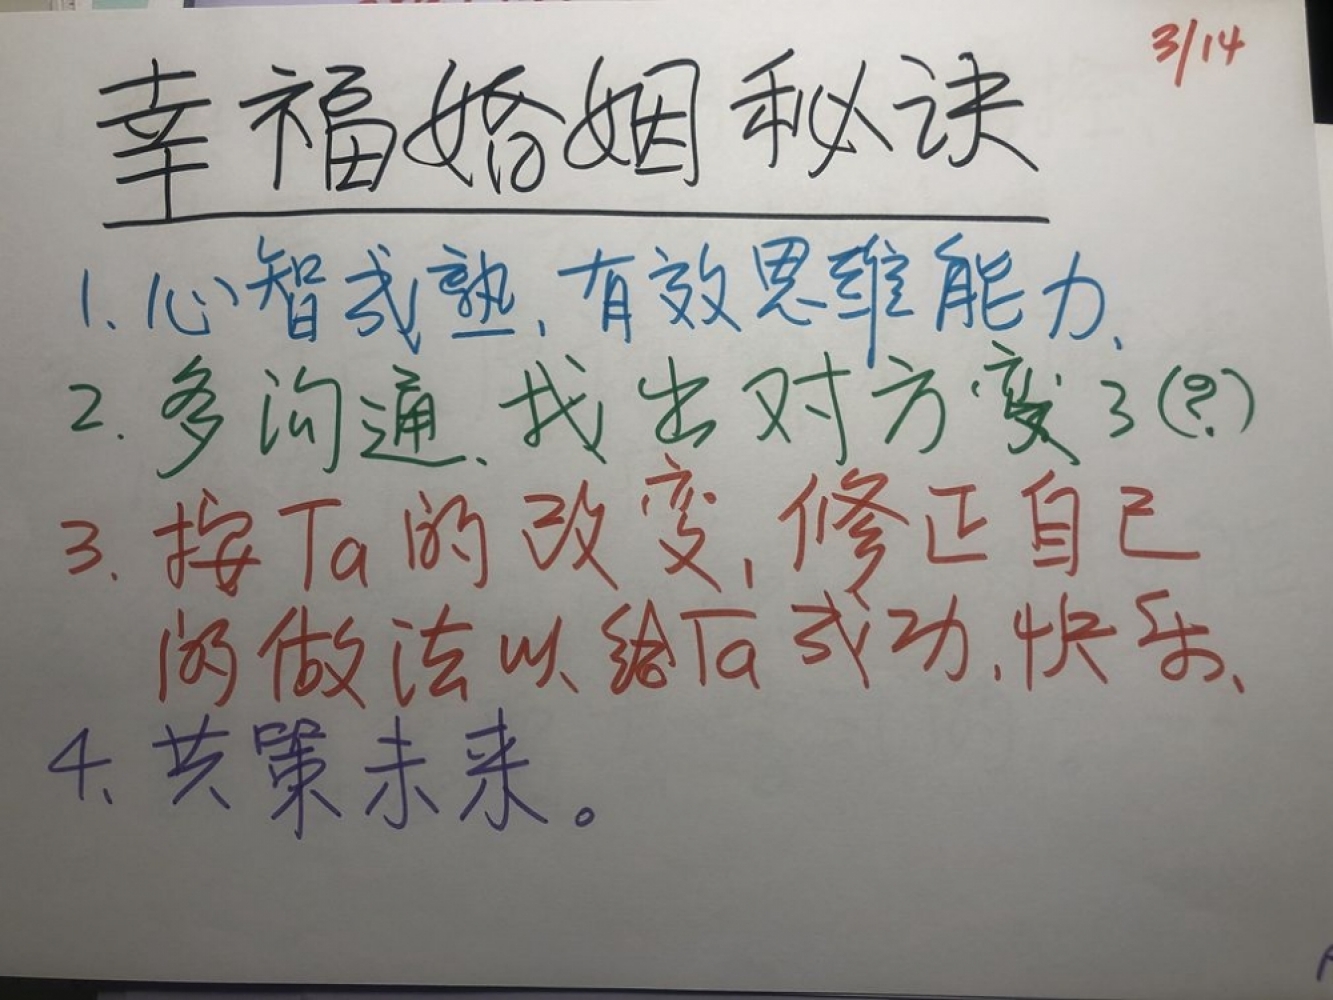 3/14
幸福婚姻秘诀
1. 心智成熟、有效思维能力、
2. 多沟通、找出对方变了(?)
3. 按Ta的改变、修正自己
的做法以给Ta成功、快乐、
4、共策未来。